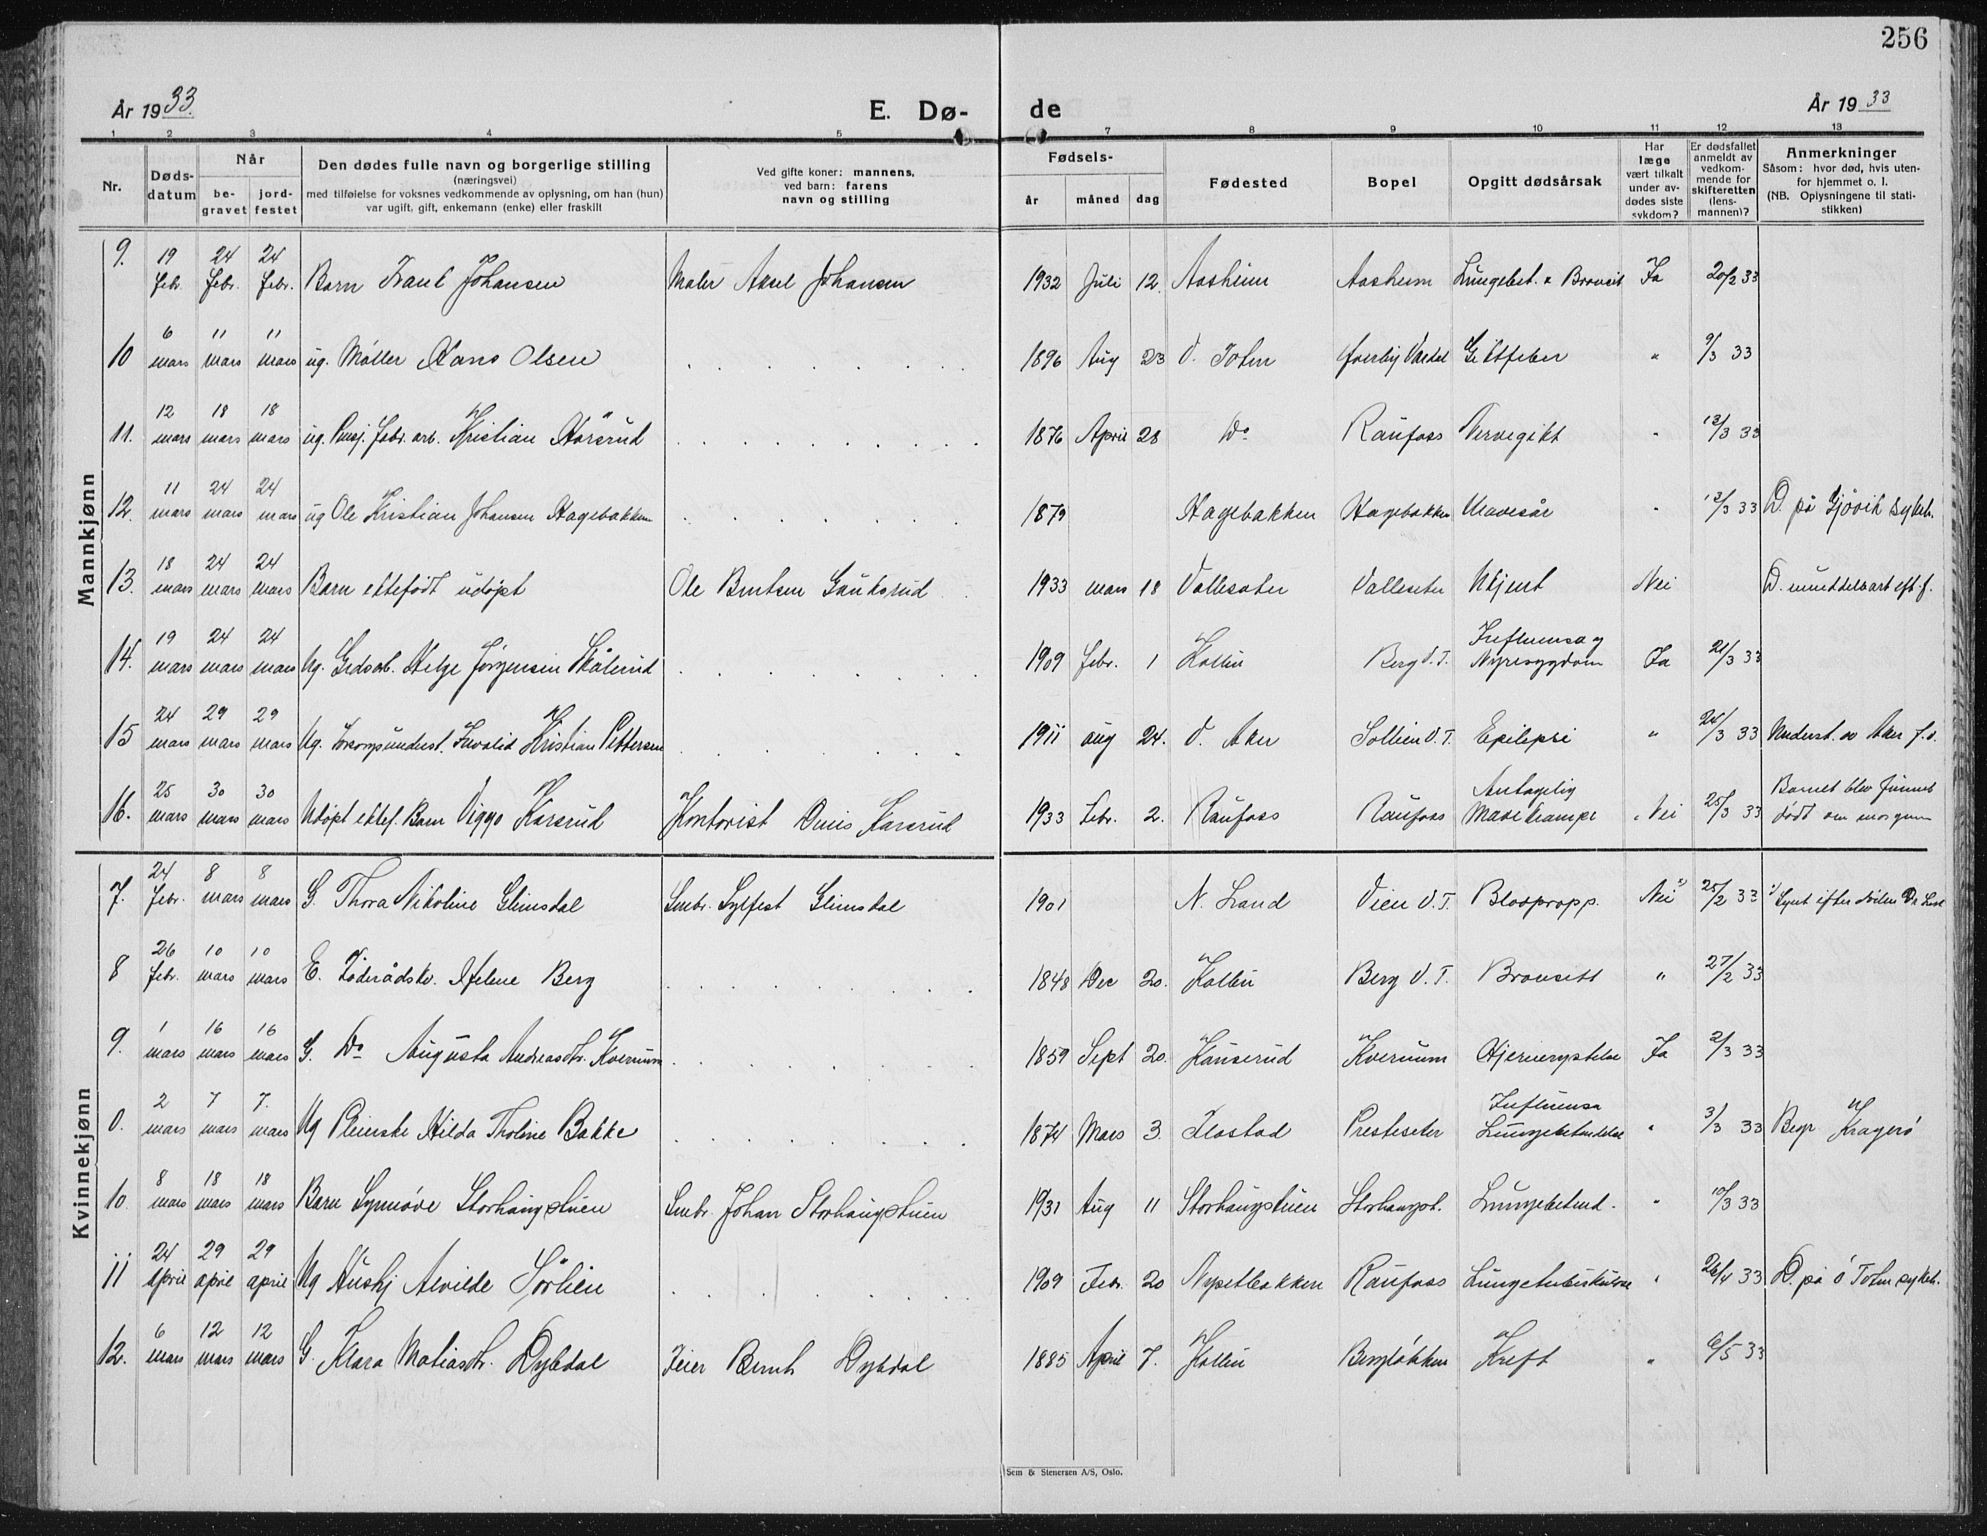 256
År 1933.
E. Dø-
de
År 1933
1 2 3 4 5 7 8 9 10 11 12 13
Nr.
Døds-
datum
Når
be-
gravet
jord-
festet
Den dødes fulle navn og borgerlige stilling
(næringsvei)
med tilføielse for voksnes vedkommende av oplysning, om han (hun)
var ugift, gift, enkemann (enke) eller fraskilt
Ved gifte koner: mannens,
ved barn: farens
navn og stilling
Fødsels-
år måned dag
Fødested
Bopel
Opgitt dødsårsak
Har
læge
vært tilkalt
under av-
dødes siste
sykdom?
Er dødsfallet
anmeldt av
vedkom-
mende for
skifteretten
(lens-
mannen)?
Anmerkninger
Såsom: hvor død, hvis uten-
for hjemmet o. l.
(NB. Oplysningene til stati-
stikken)
Mannkjønn
9. 19 febr. 24 febr. 24 febr. Barn Traul Johansen Maler Axel Johansen 1932 Juli 12. Aasheim Aasheim Lungebet. & Bronsit Ja 20/2 33
10 6 mars 11 mars 11 mars ug. Møller Hans Olsen 1896 Aug 23 V. Toten Øverby Vardal Giktfeber " 9/3 33
11. 12 mars 18 mars 18 mars ug. Pensj. fabr. arb. Kristian Hørsrud 1876 April 28 Do Raufoss Nervegikt " 13/3 33
12. 11 mars 24 mars 24 mars ug Ole Kristian Johansen Hagebakken 1879 Hagebakken Hagebakken Mavesår " 13/3 33 D. på Gjøvik sykeh.
13. 18 mars 24 mars 24 mars Barn ektefødt udøpt Ole Berntsen Gauksrud 1933 mars 18 Vallesæter Valleseter Ukjent Nei D. umiddelbart eft. f.
14. 19 mars 24 mars 24 mars Ug. Grdsarb. Helge Jørgensen Skålerud 1909 febr. 1 Kollin Berg V.T. Influensa og Nyresygdom Ja 21/3 33
15 24 mars 29 mars 29 mars Ug. Forsorgsunderst. Invalid Kristian Pettersen 1911 aug 24. V. Aker Sollien V.T. Epilepsi " 24/3 33 Underst. av Aker f.v.
16. 25 mars 30 mars 30 mars Udøpt ektef. Barn Viggo Karsrud Kontorist Karsrud 1933 Febr. 2. Raufoss Raufoss Antagelig Mavekrampe Nei 25/3 33 Barnet blev funnet dødt om morgenen
Kvinnekjønn
7. 24 febr. 8 mars 8 mars G. Thora Nikoline Glimsdal Smbr. Sylfest Glimsdal 1901 N. Land Vien V.T. Blodpropp. Nei 1) 25/2 33 1) Synt efter døden Dr.
8 26 febr. 10 mars 10 mars E. Føderådsk. Helene Berg 1848 Dec 20. Kollin Berg V.T. Bronsitt " 27/2 33
9. 1 mars 16 mars 16 mars G. Do Augusta Andreasdtr. Kvernum 1859 Sept 20. Hauserud Kvernum Hjernerystelse Ja 2/3 33
0. 2 mars 7 mars 7. mars Ug Pleierske Hilda Tholine Bakke 1874 Mars 3. Ilostad Presteseter Influensa Lungebetendelse " 3/3 33 Begr Kragerø
10. 8 mars 18 mars 18 mars Barn Synnøve Storhaugstuen Smbr. Johan Storhaugstuen 1931 Aug 11 Storhaugstuen Storhaugst. Lungebetend. " 10/3 33
11 24 april 29 april 29 april Ug Hushj Alvilde Sørlien 1909 Febr. 20 Nysetbakken Raufoss Lungetuberkulose " 26/4 33 D. på Ø Toten sykeh.
12. 6 mars 12 mars 12 mars G. Klara Matiasdtr. Dybdal Feier Bernt Dybdal 1885 April 7. Kollin Bergløkken Kreft " 6/5 33
Sem & Stenersen A/S, Oslo.